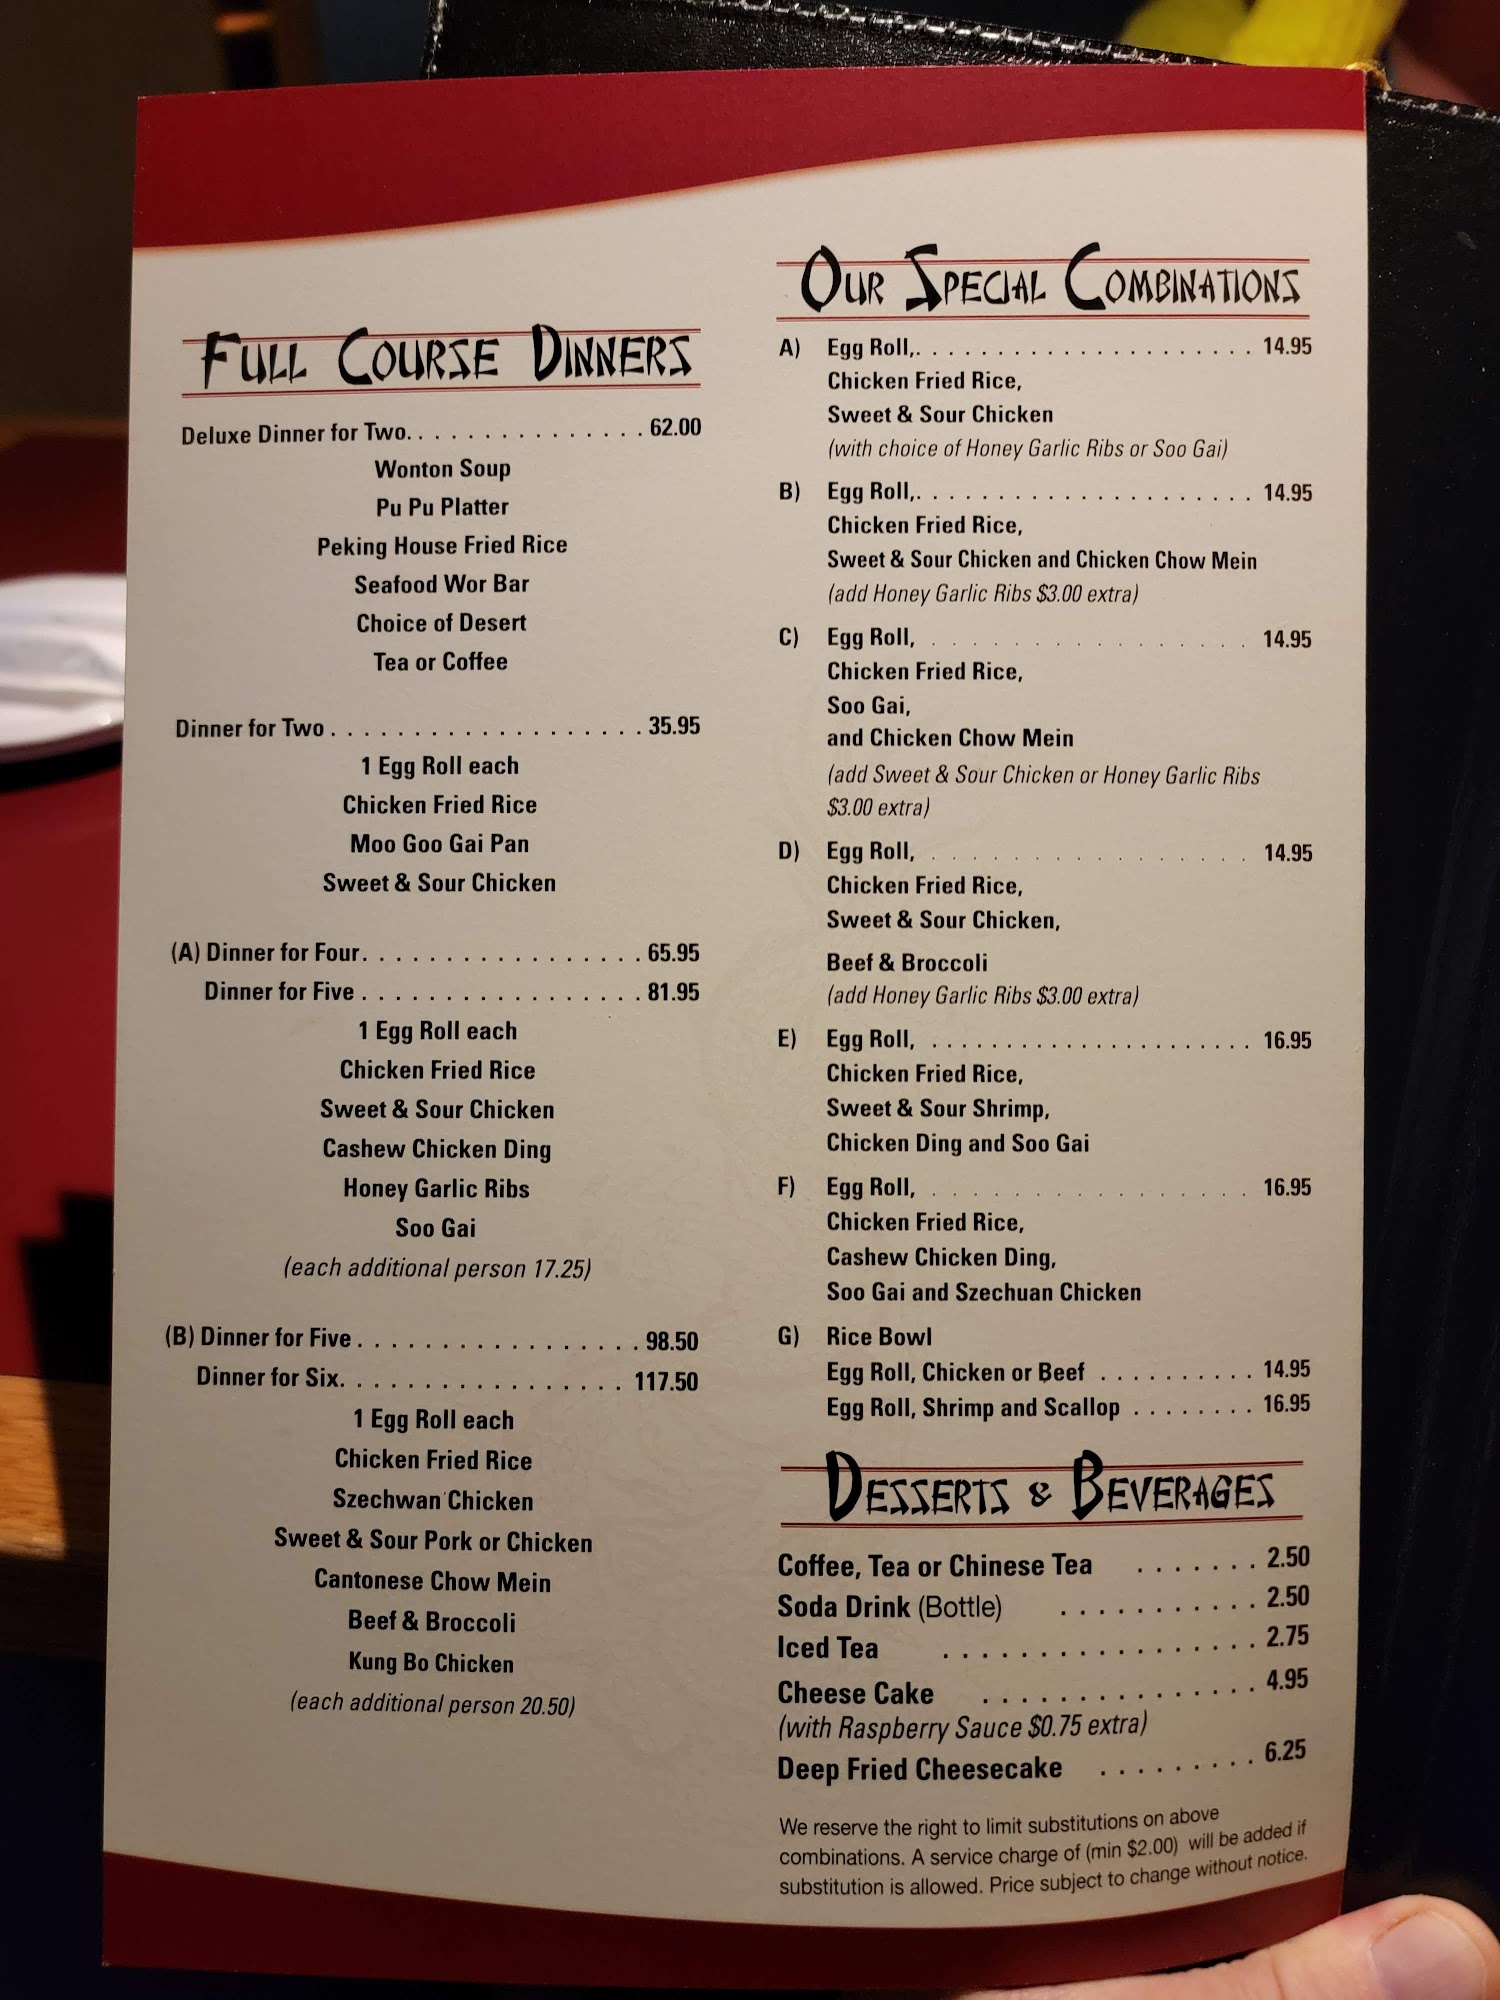 Full Course Dinners
Deluxe Dinner for Two. . . . . . . . . . . . . . . 62.00
Wonton Soup
Pu Pu Platter
Peking House Fried Rice
Seafood Wor Bar
Choice of Desert
Tea or Coffee
Dinner for Two . . . . . . . . . . . . . . . . . . . 35.95
1 Egg Roll each
Chicken Fried Rice
Moo Goo Gai Pan
Sweet & Sour Chicken
(A) Dinner for Four. . . . . . . . . . . . . . . . . 65.95
Dinner for Five . . . . . . . . . . . . . . . . . 81.95
1 Egg Roll each
Chicken Fried Rice
Sweet & Sour Chicken
Cashew Chicken Ding
Honey Garlic Ribs
Soo Gai
(each additional person 17.25)
(B) Dinner for Five . . . . . . . . . . . . . . . . . 98.50
Dinner for Six. . . . . . . . . . . . . . . . . 117.50
1 Egg Roll each
Chicken Fried Rice
Szechwan Chicken
Sweet & Sour Pork or Chicken
Cantonese Chow Mein
Beef & Broccoli
Kung Bo Chicken
(each additional person 20.50)
Our Special Combinations
A) Egg Roll,. . . . . . . . . . . . . . . . . . . . . 14.95
Chicken Fried Rice,
Sweet & Sour Chicken
(with choice of Honey Garlic Ribs or Soo Gai)
B) Egg Roll,. . . . . . . . . . . . . . . . . . . . . 14.95
Chicken Fried Rice,
Sweet & Sour Chicken and Chicken Chow Mein
(add Honey Garlic Ribs $3.00 extra)
C) Egg Roll, . . . . . . . . . . . . . . . . 14.95
Chicken Fried Rice,
Soo Gai,
and Chicken Chow Mein
(add Sweet & Sour Chicken or Honey Garlic Ribs
$3.00 extra)
D) Egg Roll, . . . . . . . . . . . . . . . . 14.95
Chicken Fried Rice,
Sweet & Sour Chicken,
Beef & Broccoli
(add Honey Garlic Ribs $3.00 extra)
E) Egg Roll, . . . . . . . . . . . . . . . . . . . . 16.95
Chicken Fried Rice,
Sweet & Sour Shrimp,
Chicken Ding and Soo Gai
F) Egg Roll, . . . . . . . . . . . . . . . . 16.95
Chicken Fried Rice,
Cashew Chicken Ding,
Soo Gai and Szechuan Chicken
G) Rice Bowl
Egg Roll, Chicken or Beef . . . . . . . . . . 14.95
Egg Roll, Shrimp and Scallop . . . . . . . . 16.95
Desserts & Beverages
Coffee, Tea or Chinese Tea . . . . . . . 2.50
Soda Drink (Bottle) . . . . . . . . . . . 2.50
Iced Tea . . . . . . . . . . . . . . . . . 2.75
Cheese Cake . . . . . . . . . . . . . . . 4.95
(with Raspberry Sauce $0.75 extra)
Deep Fried Cheesecake . . . . . . . . . 6.25
We reserve the right to limit substitutions on above
combinations. A service charge of (min $2.00) will be added if
substitution is allowed. Price subject to change without notice.